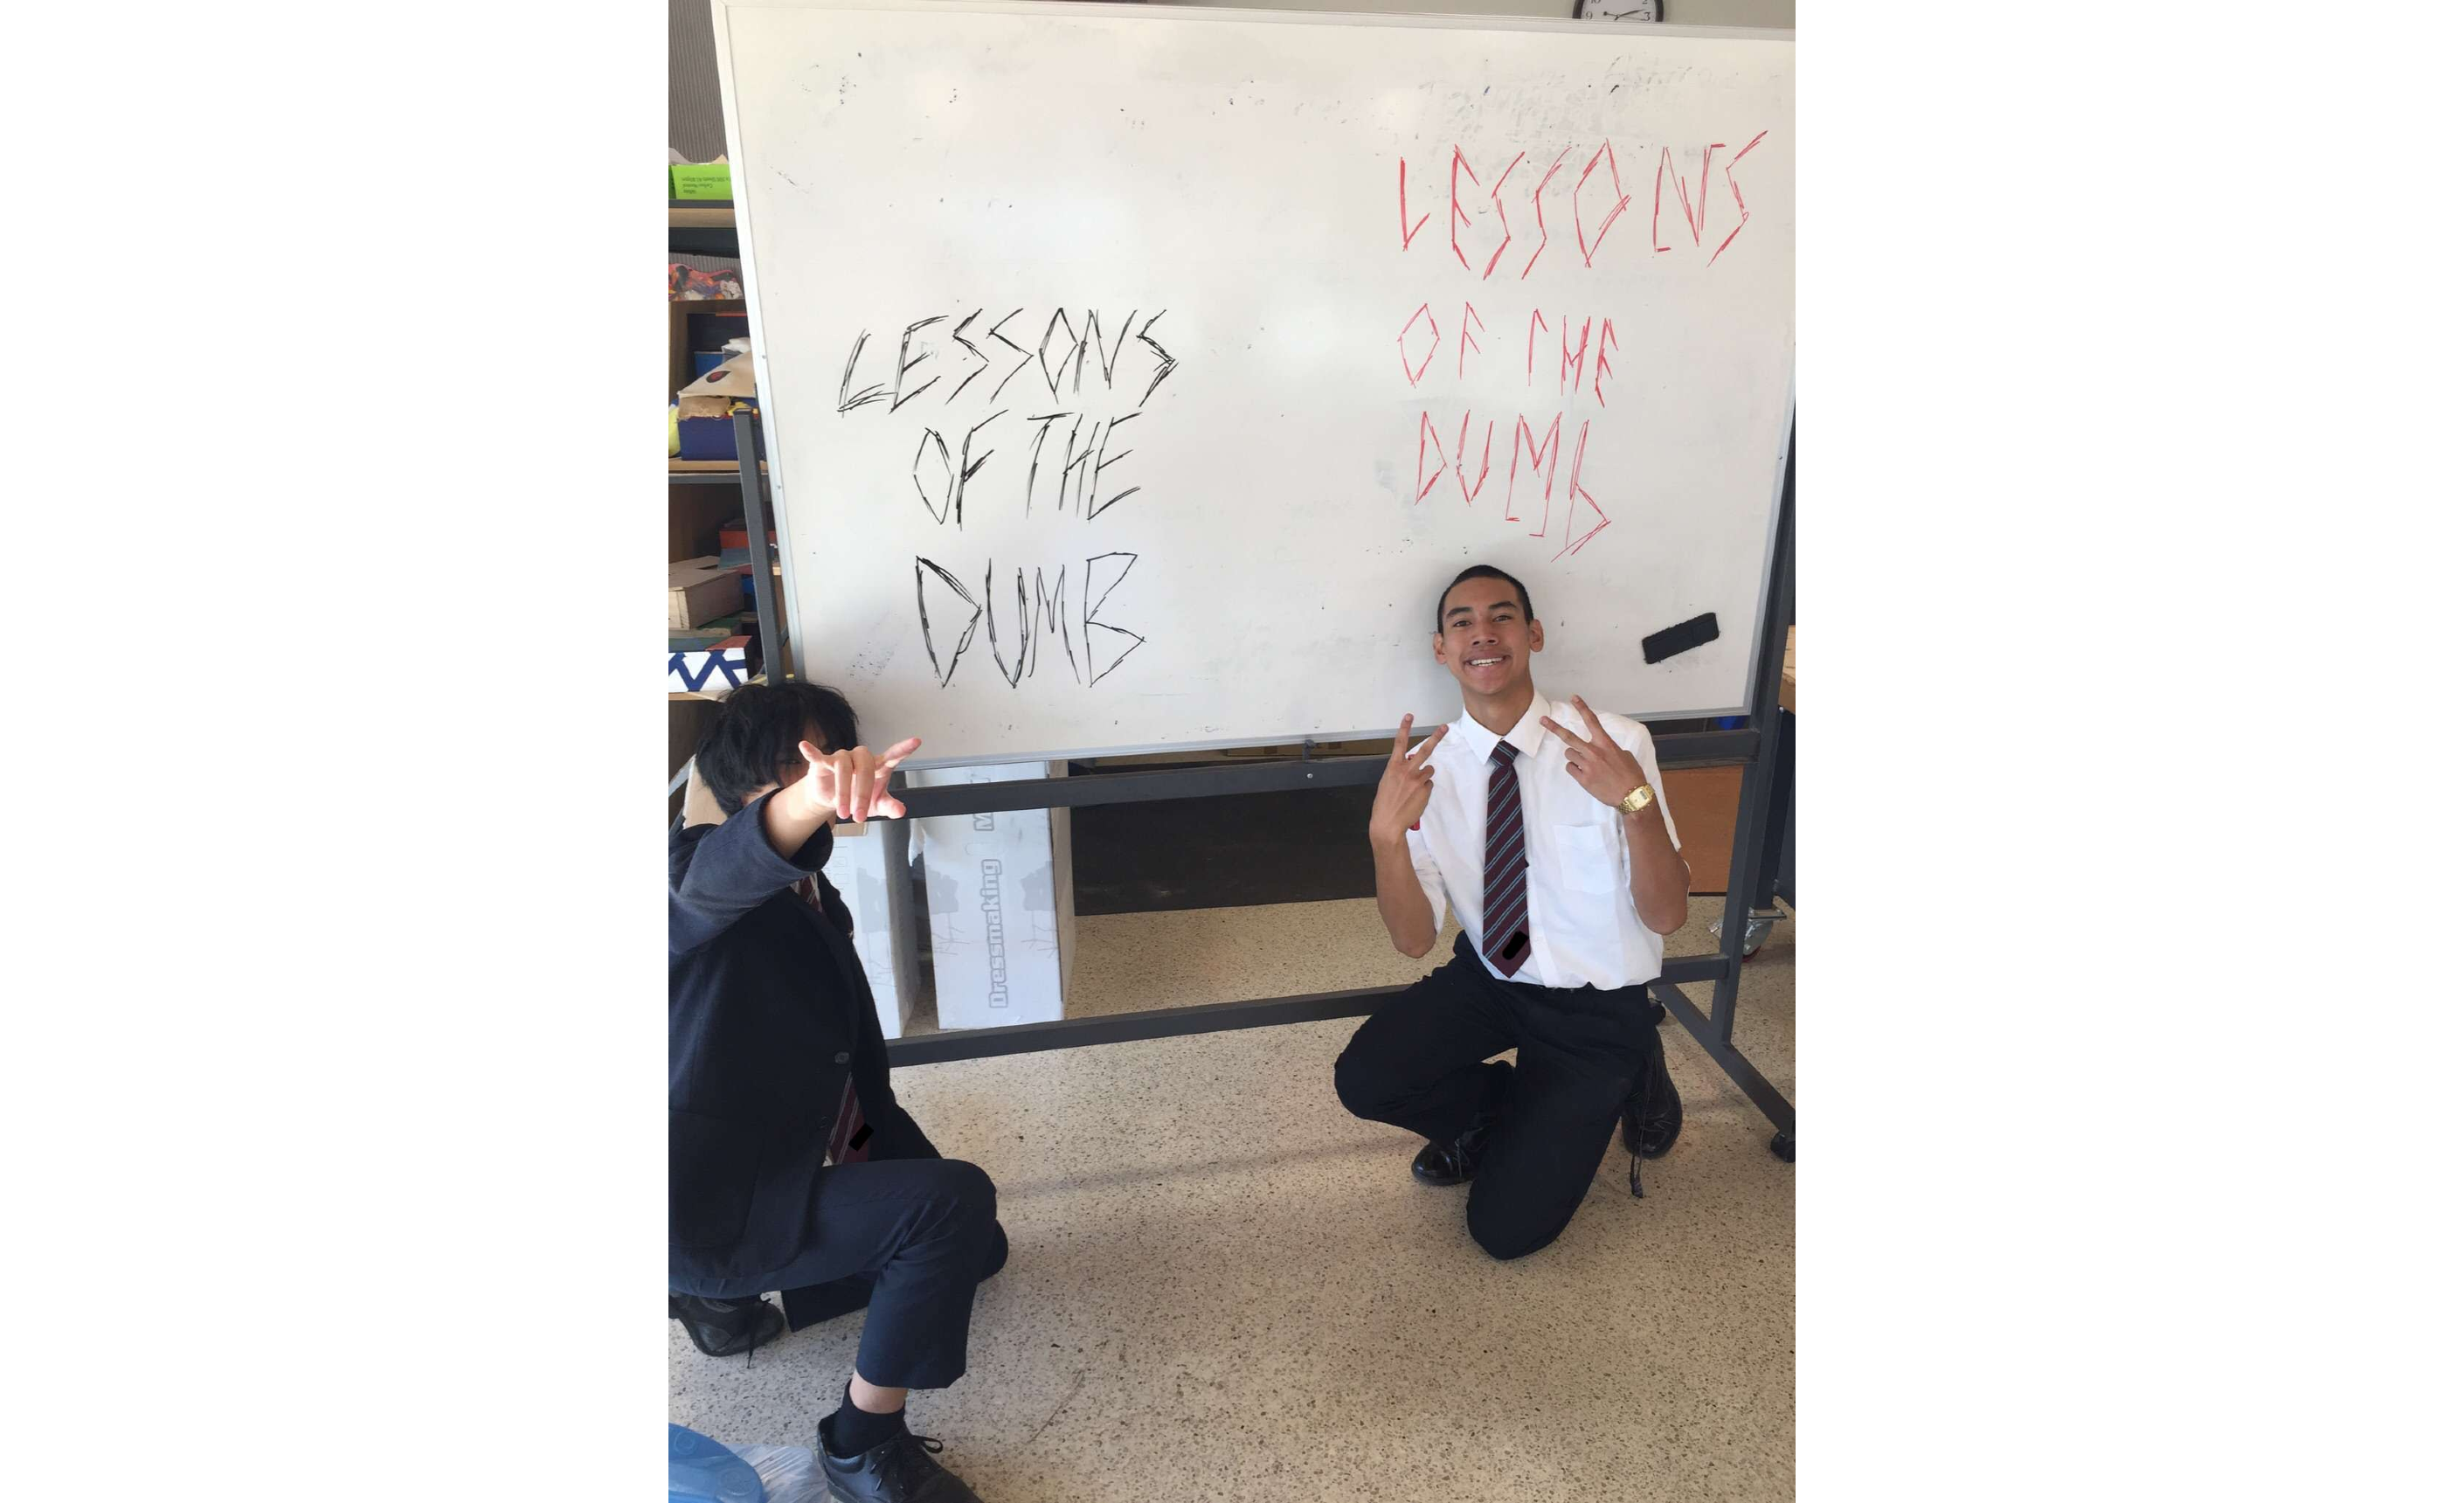 LESSONS
OF THE
DUMB
LESSONS
OF THE
DUMB
Dressmaking
9
2
3